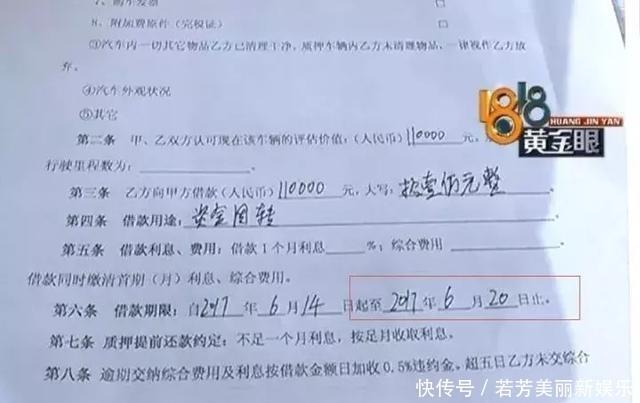 7、购车发票 □
8、附加费原件（完税证） □
③汽车内一切其它物品乙方已清理干净，质押车辆内乙方未清理物品，一律视作乙方放
弃。
④汽车外观状况
⑤其它
第二条 甲、乙双方认可现在该车辆的评估价值：（人民币）110000 元，
行驶里程数为：
第三条 乙方向甲方借款（人民币）110000 元，大写：拾壹
元整
第四条 借款用途：资金周转
第五条 借款利息、费用：借款 1 个月利息 %；综合费用 。
借款同时缴清首期（月）利息、综合费用。
第六条 借款期限：自2017 年 6 月 14 日起至 2017 年 6 月 20 日止。
第七条 质押提前还款约定：不足一个月利息，按足月收取利息。
第八条 逾期交纳综合费用及利息按借款金额日加收 0.5%违约金，超五日乙方未交综合
1818
HUANG JIN YAN
黄金眼
快传号／若芳美丽新娱乐